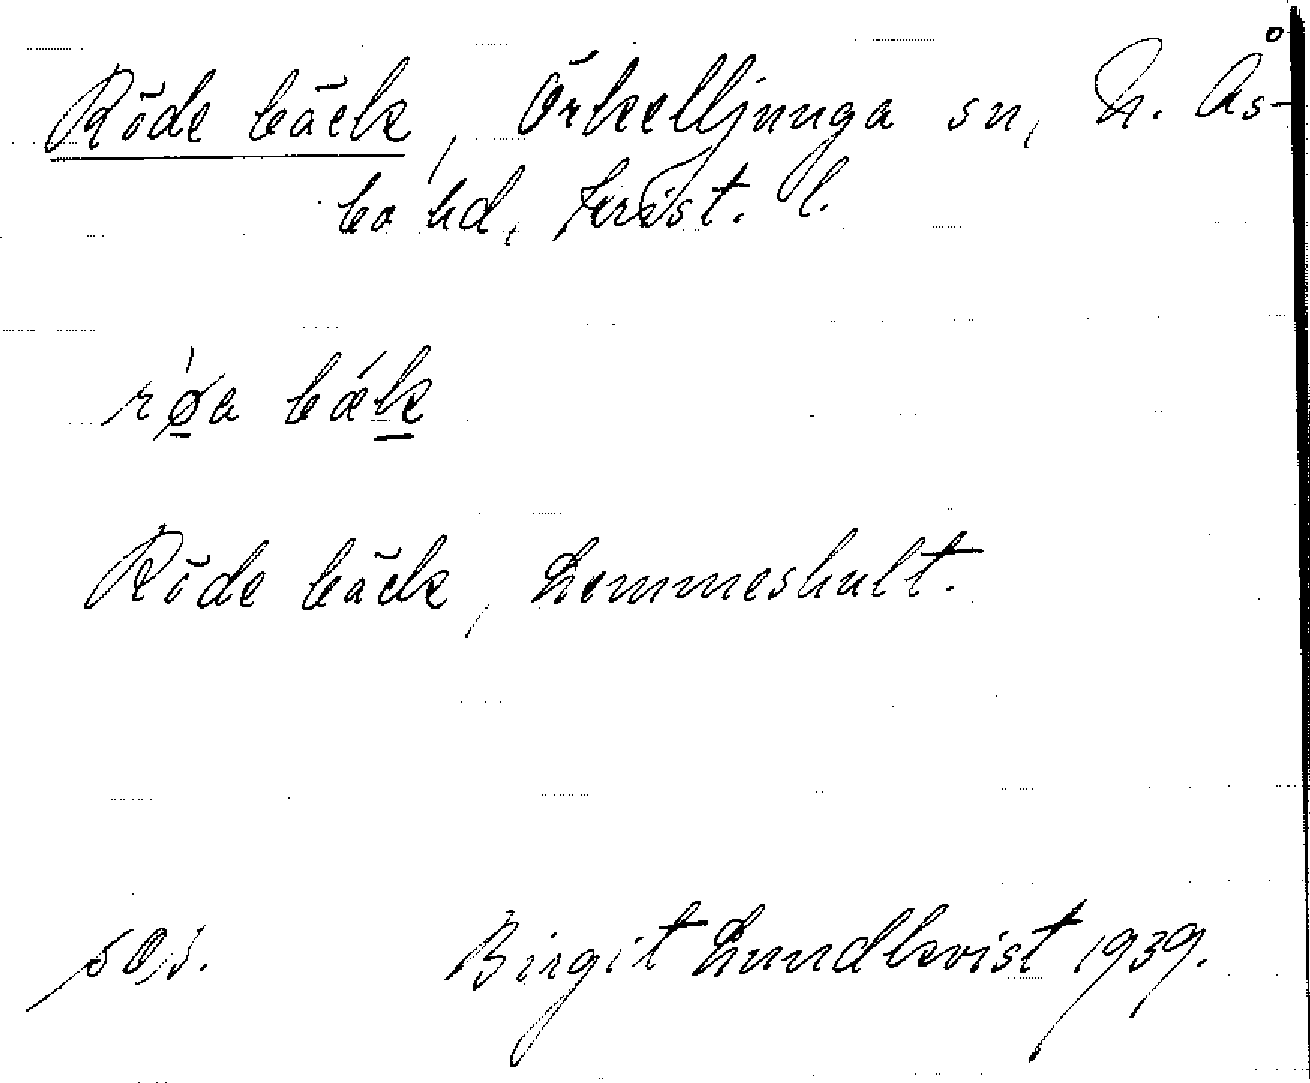 Röde bäck, Örkelljunga sn, N. Ås-
bo hd, Krist. l.
røa bæk
Röde bäck, Lemmeshult.
Birgit Lundkvist 1939.